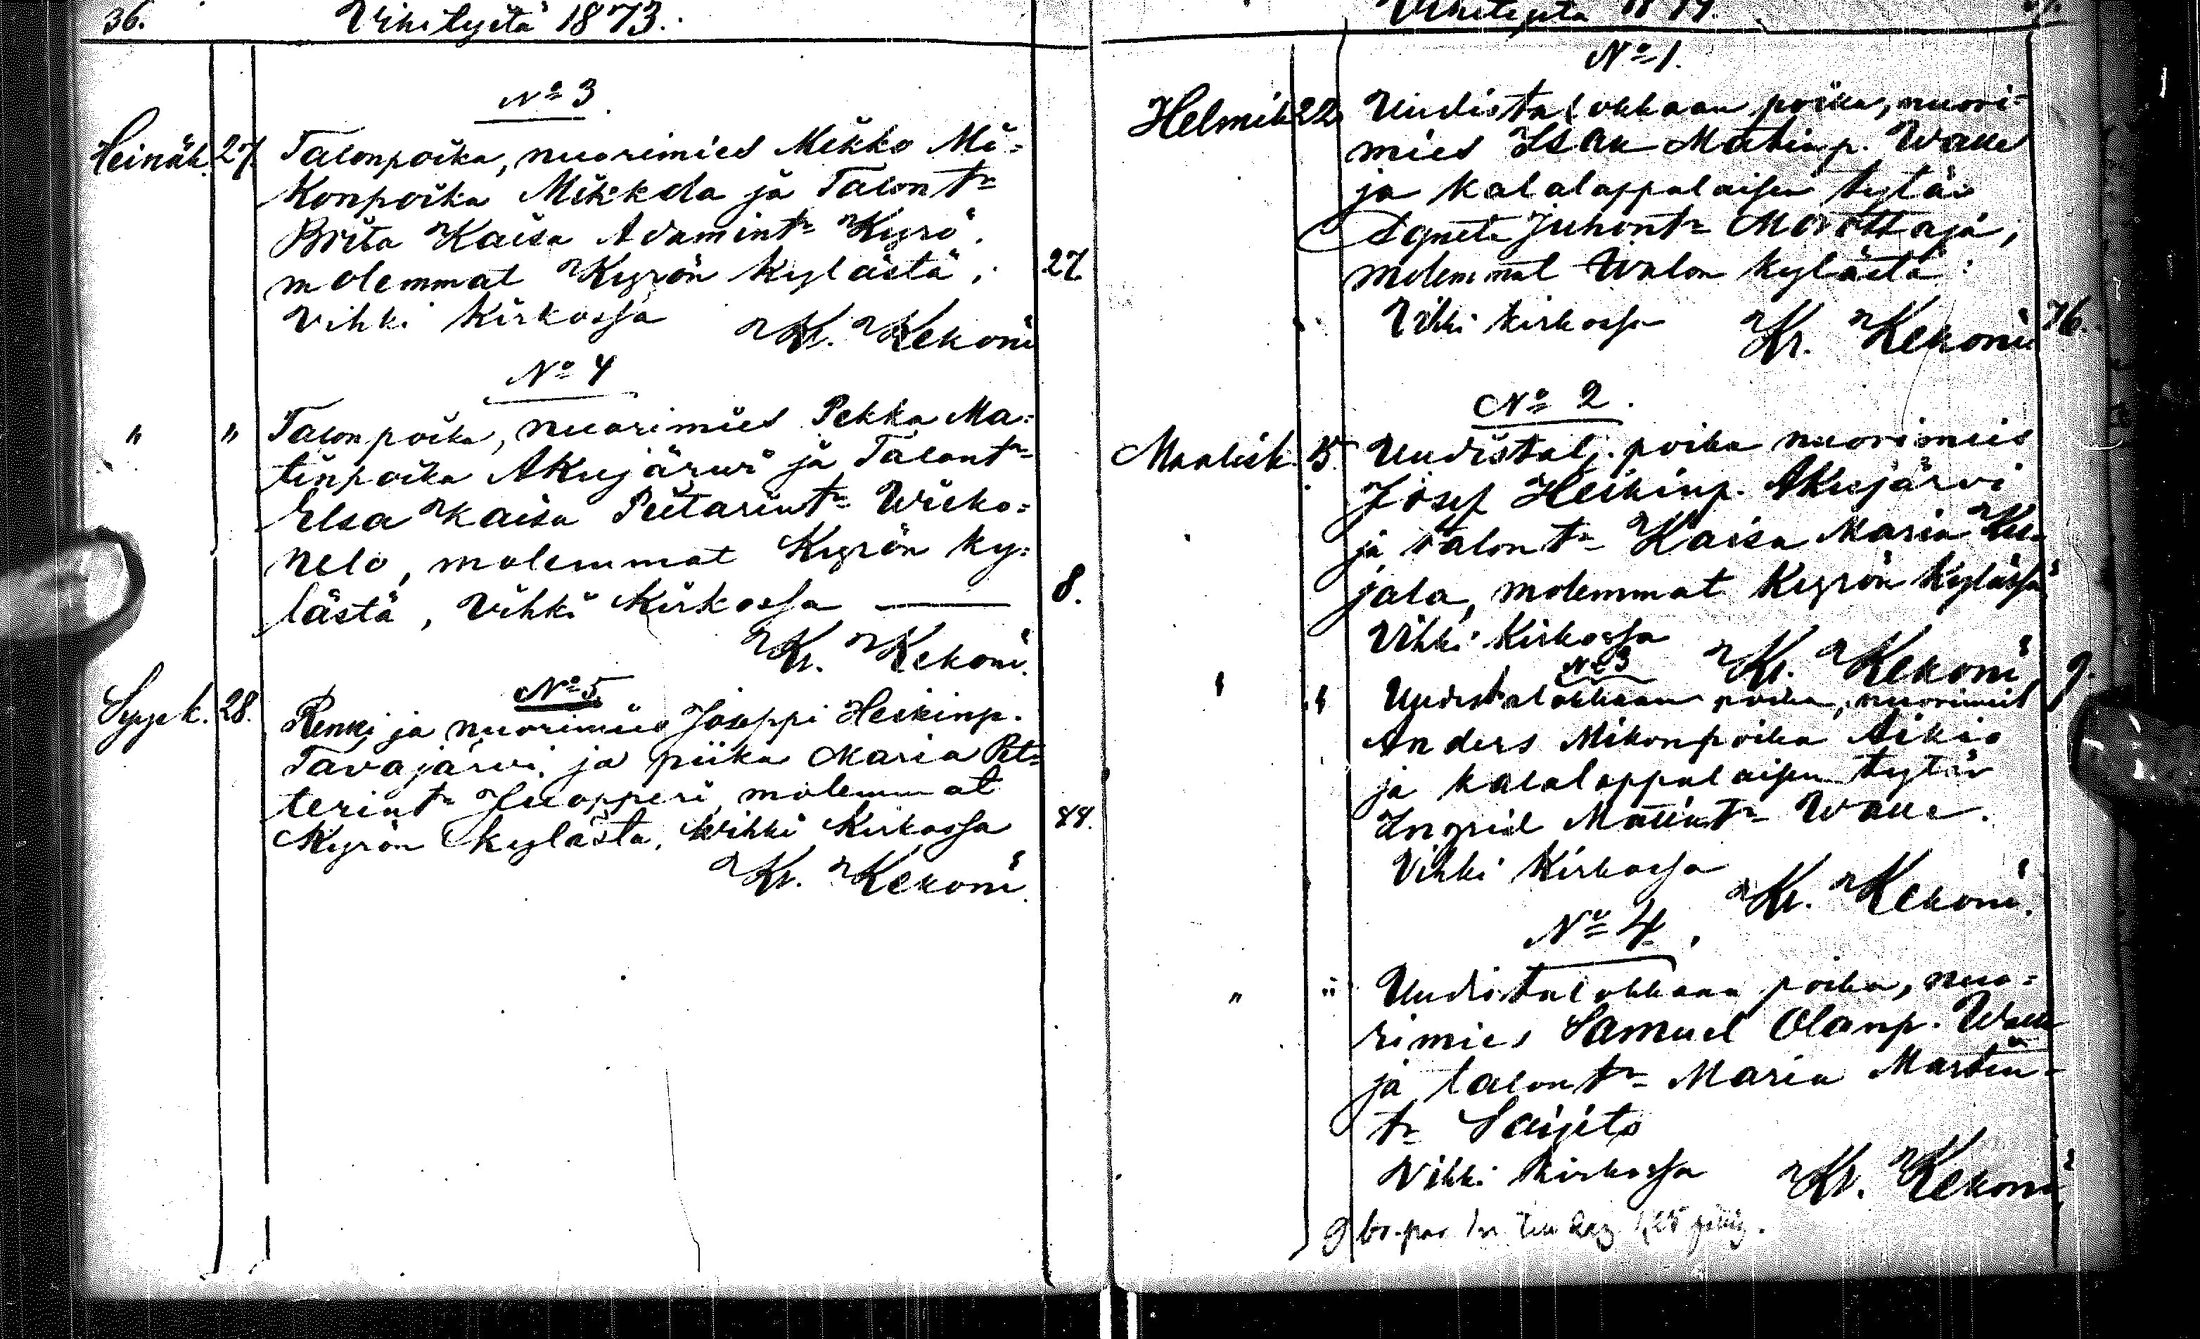 36.
Vihityitä 1873.
No 3.
Heinäk. 27. Talonpoika, nuorimies Mikko Mi=
konpoika Mikkola ja Talontr
Brita Kaisa Adamintr Kyrö,
molemmat Kyrön kylästä,
27
Vihki Kirkossa Kr. Kekoni
No 4
" " Talonpoika, nuorimies Pekka Ma=
tinpoika Akujärwi ja Talontr
Elsa Kaisa Pietarintr
molemmat Kyrön ky=
lästä, Vihki Kirkossa
8.
Kr. Kekoni.
No 5.
Syysk. 28. Renki ja nuorimies Joseppi Heikinp.
Tavajärwi, ja piika Maria Pet=
terintr Juopperi molemmat
Kyrön kylästä, Vihki Kirkossa
Kr. Kekoni.
Vihityitä
No 1.
Helmik 22 Uudistalokkaan poika, nuori=
mies Isak Matinp. Walle
ja kalalappalaisen tytär
Agneta Juhontr Morottaja,
molemmat kylästä.
Vihki kirkossa Kr. Kekoni
76.
No 2.
Maalisk. Uudistal. poika nuorimies
Josef Heikinp. Akujärvi
ja talontr Kaisa Maria
jala, molemmat Kyrön Kylässä
Vihki Kirkossa Kr. Kekoni
9.
No 3
" " Uudistalokkaan poika, nuorimies
Anders Mikonpoika Aikio
ja kalalappalaisen tytär
Ingrid Matintr Walle.
Vihki Kirkossa
Kr. Kekoni.
No 4.
" " Uudistalokkaan poika, nuo=
rimies Samuel Olanp. Walle
ja talontr Maria Martin=
tr Saijets
Vihki kirkossa Kr. Kekoni